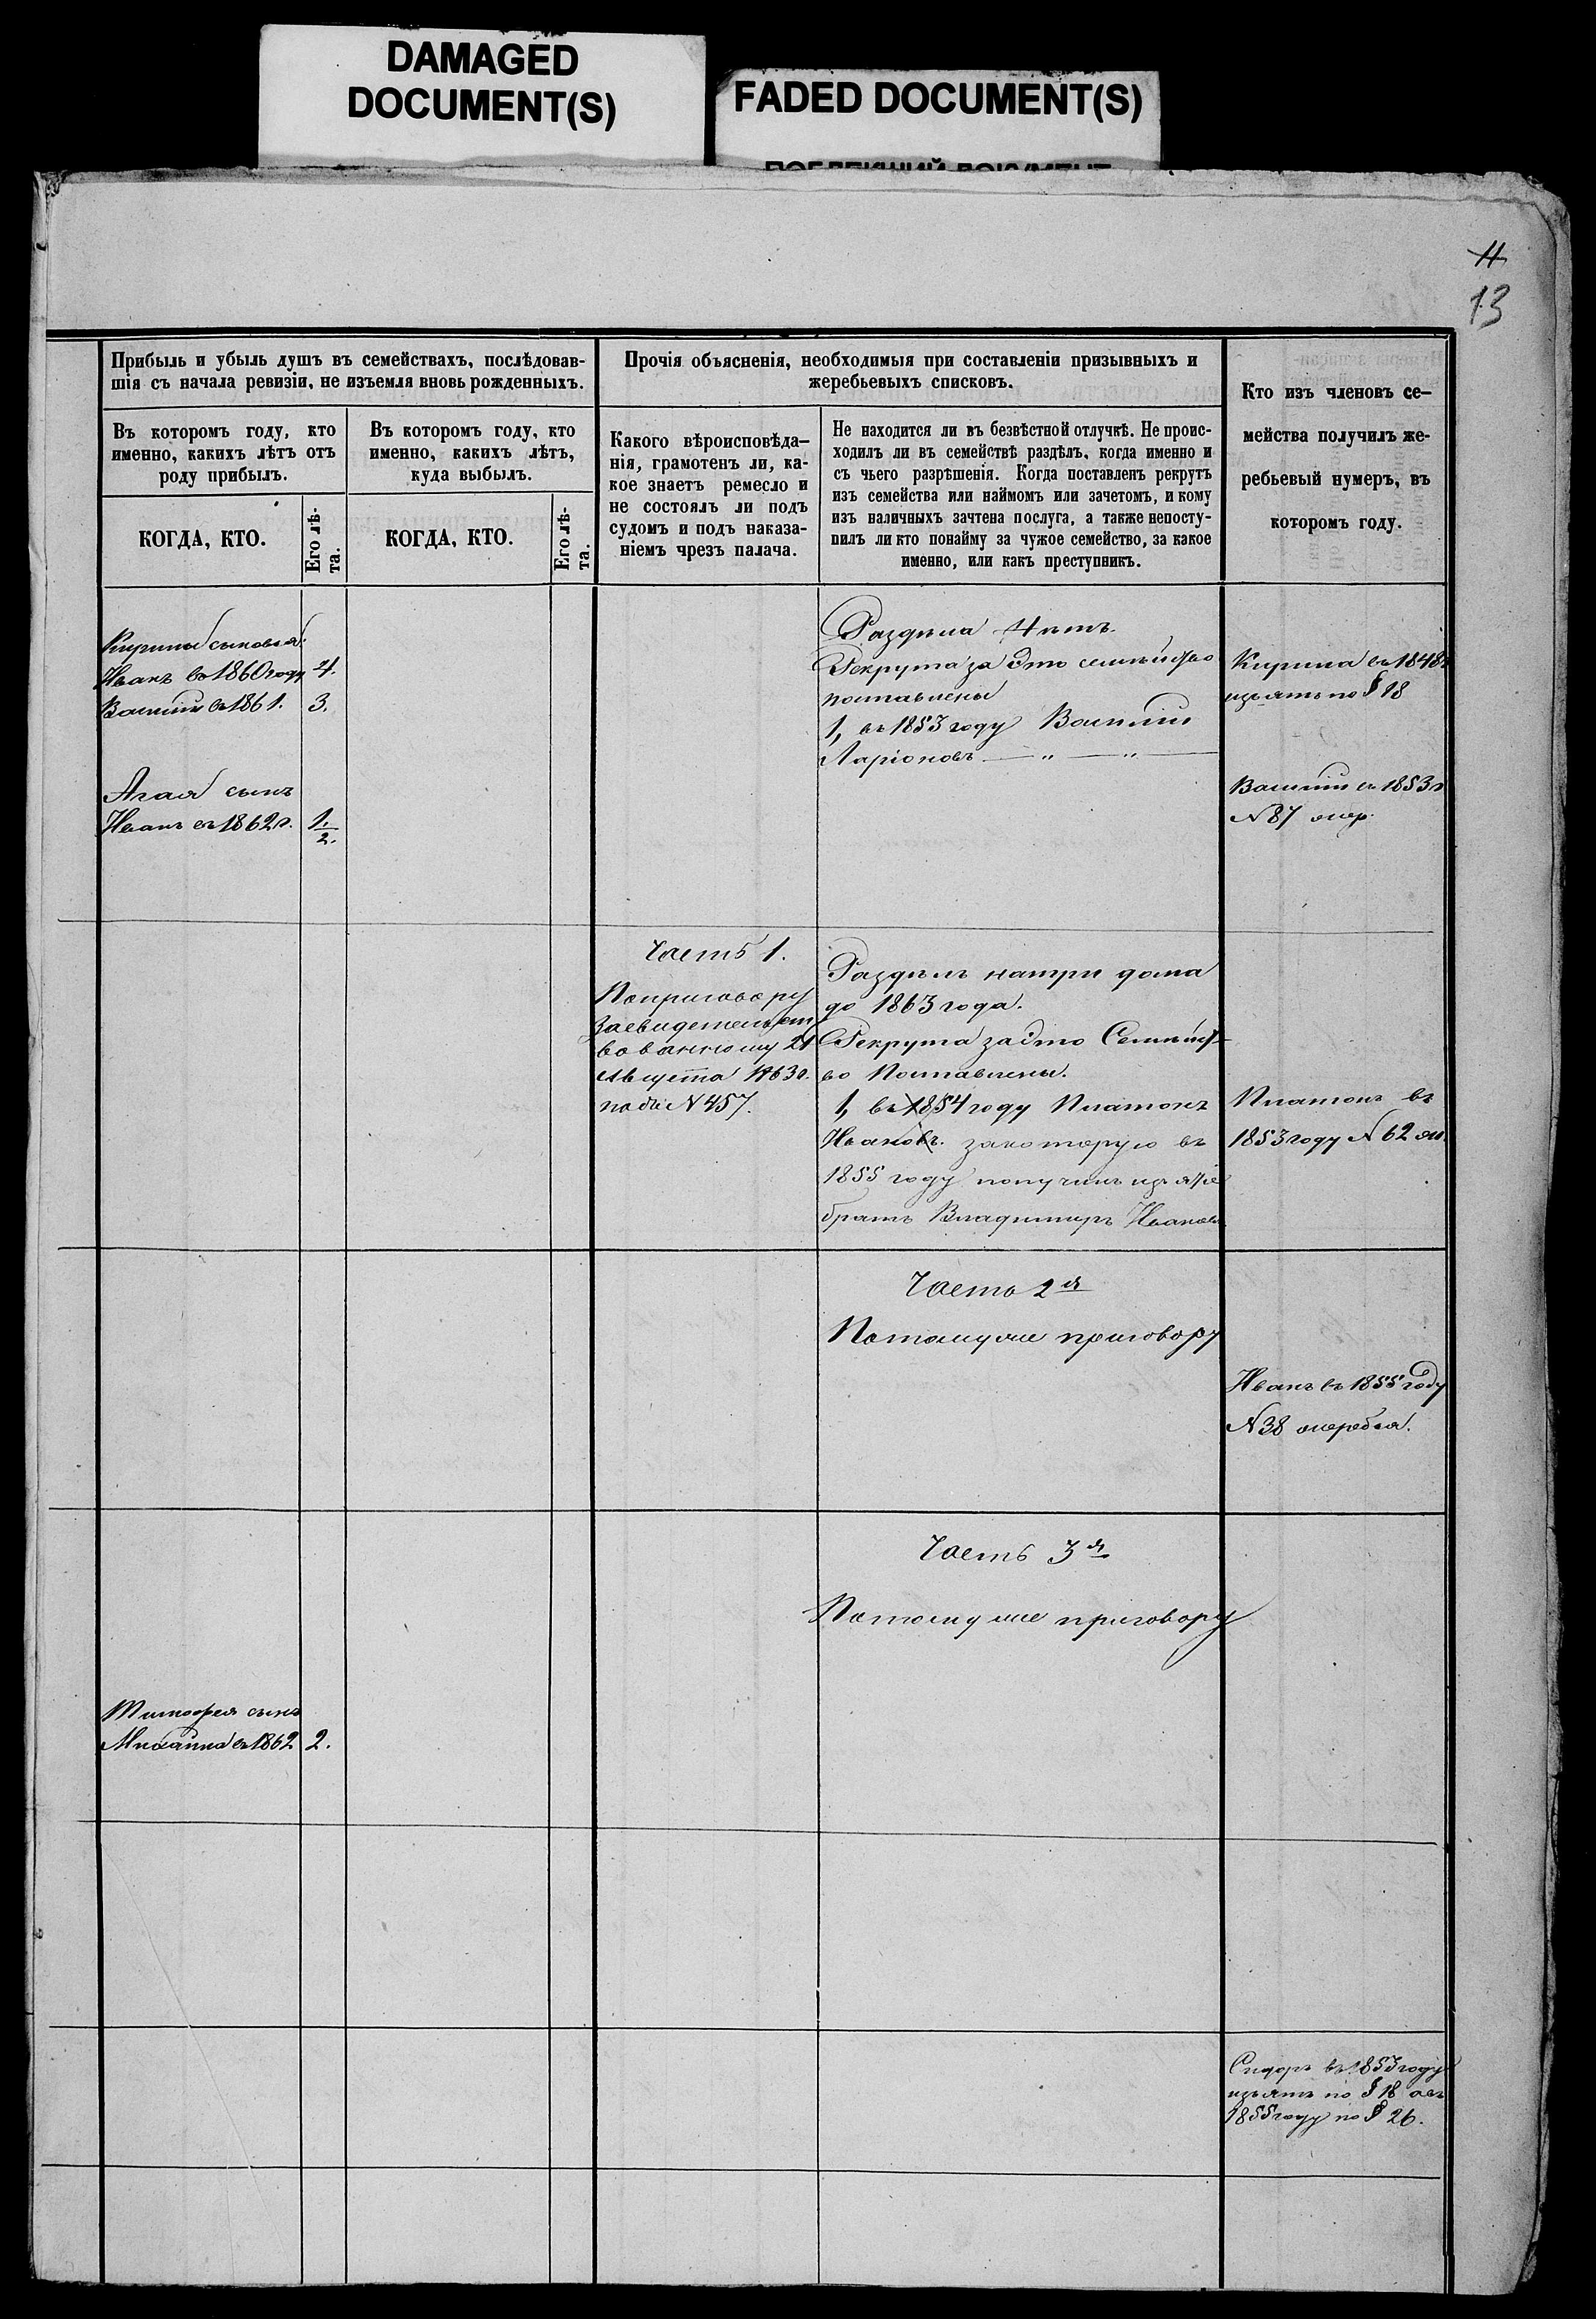 DAMAGED
DOCUMENT(S)
FADED DOCUMENT(S)
11
13
Прибыль и убыль душъ въ семействахъ, послѣдовав-
шія съ начала ревизіи, не изъемля вновь рожденныхъ.
Въ которомъ году, кто
именно, какихъ лѣтъ отъ
роду прибылъ.
КОГДА, КТО.
Его лѣ-
та.
Въ которомъ году, кто
именно, какихъ лѣтъ,
куда выбылъ.
КОГДА, КТО.
Его лѣ-
та.
Прочія объясненія, необходимыя при составленіи призывныхъ и
жеребьевыхъ списковъ.
Какого вѣроисповѣда-
нія, грамотенъ ли, ка-
кое знаетъ ремесло и
не состоялъ ли подъ
судомъ и подъ наказа-
ніемъ чрезъ палача.
Не находится ли въ безвѣстной отлучкѣ. Не проис-
ходилъ ли въ семействѣ раздѣлъ, когда именно и
съ чьего разрѣшенія. Когда поставленъ рекрутъ
изъ семейства или наймомъ или зачетомъ, и кому
изъ наличныхъ зачтена послуга, а также непосту-
пилъ ли кто понайму за чужое семейство, за какое
именно, или какъ преступникъ.
Кто изъ членовъ се-
мейства получилъ же-
ребьевый нумеръ, въ
которомъ году.
Кирилы сыновья:
Иванъ въ 1860 году 4.
Василій въ 1861. 3.
сынъ
Иванъ въ 1862 г. 1.
2.
Раздѣла нѣтъ.
Рекрута за это семѣйство
поставлены
1, въ 1853 году Василій
Ларіоновъ — " — " —
Кирила въ 1848 г
изъятъ по § 18
Василій въ 1853 г
N 87 жер.
Часть 1.
По приговору
засвидетельст
вованному 21
Августа 1863 г.
N 457.
Раздѣлъ натри дома
до 1863 года.
Рекрута за это Семѣйст-
во Поставлены.
1, въ 1854 году Платонъ
Ивановъ. закоторую въ
1855 году получилъ изъятіе
братъ Владимиръ Ивановъ
Платонъ въ
1853 году N 62 ж.
Часть 2я
Потомуже приговору
Иванъ въ 1855 году
N 38 жеребья.
Часть 3я
Потомуже приговору
Тимофея сынъ
Михаила въ 1862 2.
Сидоръ въ 1853 году
изъятъ по § 18 а въ
1855 году по § 26.